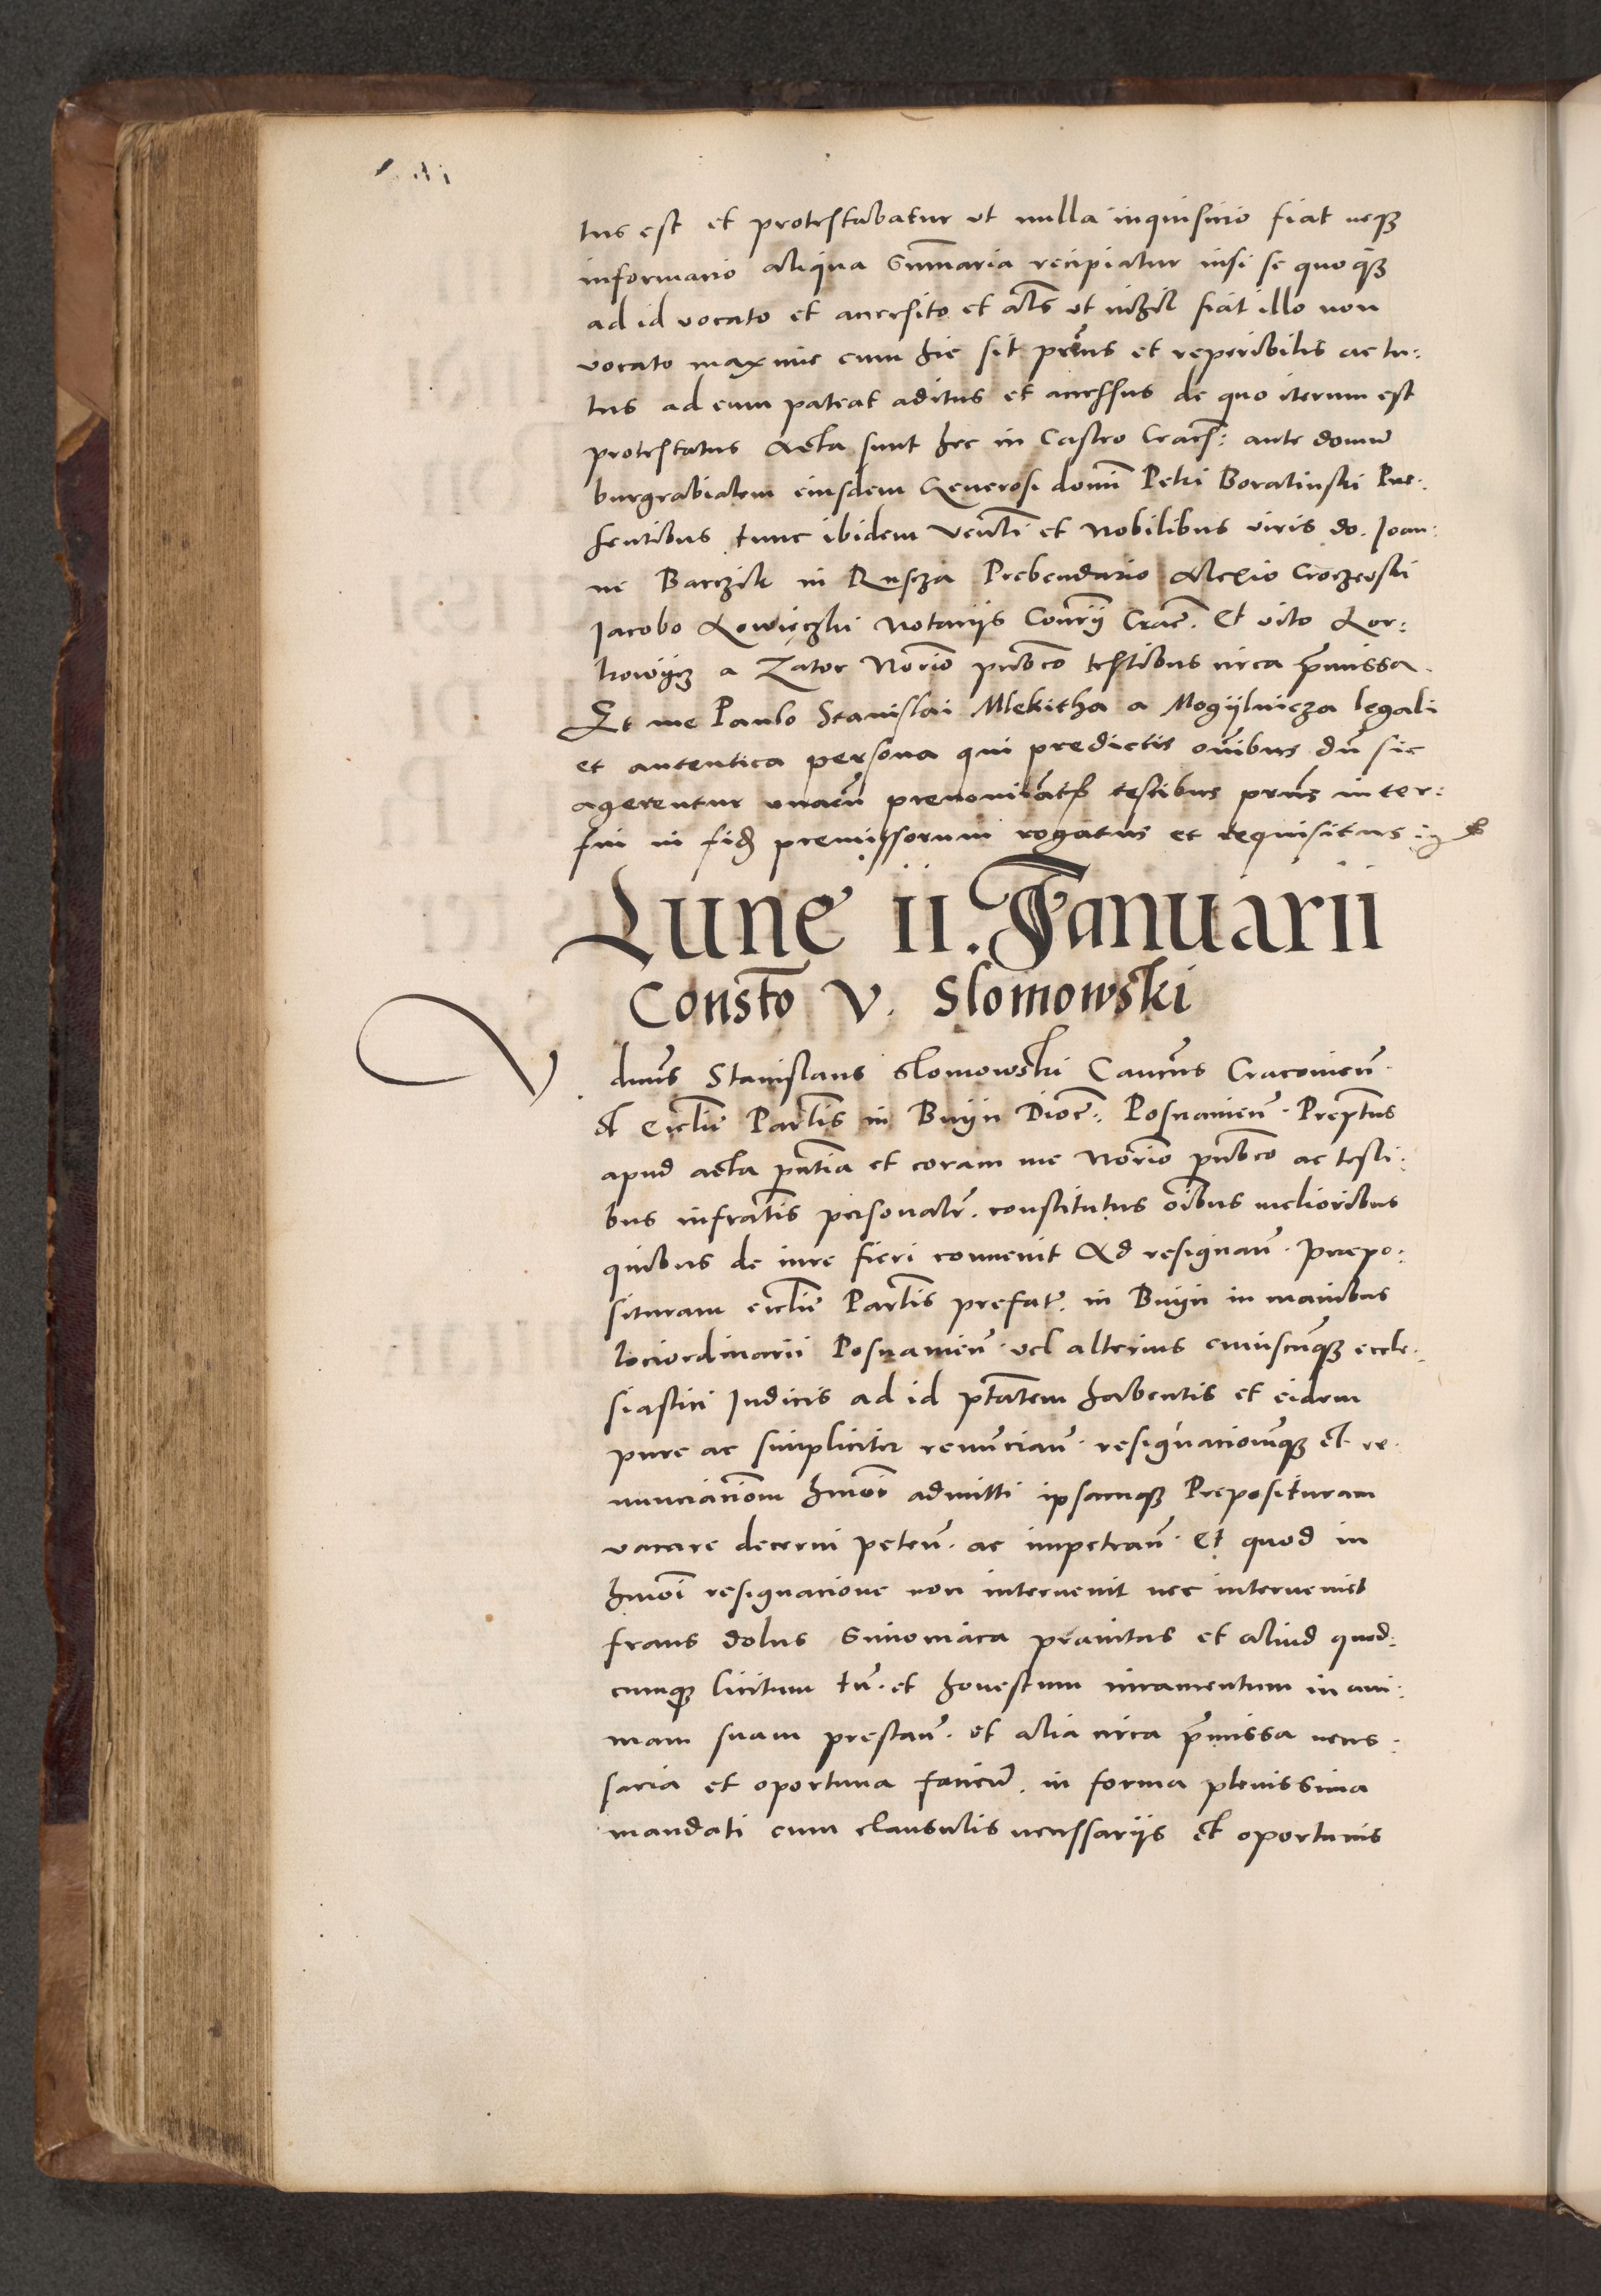 tus est et protestabatur ut nulla inquisitio fiat neqꝫ
informatio aliqua Sum̃aria recipiatur nisi se quoqꝫ
ad id vocato et accersito et al̃s ut nihil fiat illo non
vocato maxime cum hic sit prẽns et reperibilis ac tu:
tus ad eum pateat aditus et accessus de quo iterum est
protestatus Acta sunt hec in Castro Cracs̃: ante domũ
burgrabialem eiusdem Generosi domĩ Petri Boratinski Pre:
sentibus tunc ibidem Ven̄li et Nobilibus viris do. Ioan:
ne Barczik in Ruscza Prebendario Alexio Croczeoski
Jacobo Lowięczki Notarijs Con̄rij Crac̃. Et vito Lor:
kowijcz a Zator Nor̃io publ̃co testibus circa p̃missa.
Et me Paulo Stanislai Mlekitha a Mogijlnicza legali
et autentica persona qui predictis om̃ibus dũ sic
agerentur unacũ prenomiñatꝭ testibus prñs inter:
fui in fidẽ premissorum rogatus et requisitus
Lune ii. Januarii
Consto͂ V. Slomowski
V dnũs Stanislaus Slomowski Canc̃us Cracouien̄.
et Ecl̃ie Parl̃is in Bnijn Dioc̃: Posnanien̄. Prep̃tus
apud acta p̃ntia et coram me Nor̃io publ̃co ac testi:
bus infrat̃is personalr̃. constitutus oĩbus melioribus
quibus de iure fieri convenit Ad resignañ. prepo:
situram ecl̃ie Parl̃is prefat̃. in Bnijn in manibus
lociordinarii Posnanien̄. vel alterius cuiuscũqꝫ eccle:
siastici Judicis ad id pt̃atem habentis et eidem
pure ac simpliciter renũciañ. resignacionẽqꝫ et re:
nunciacio͂m hm̃oi admitti ipsamqꝫ Preposituram
vacare decerni peteñ. ac impetrañ. Et quod in
hm̃oi resignacione non intervenit nec interveniet
fraus dolus Simoniaca pravitas et aliud quod:
cumqꝫ licitum tñ. et honestum iuramentum in ani:
mam suam prestañ. et alia circa p̃missa neces:
saria et oportuna facieñ. in forma plenissima
mandati cum clausulis necessarijs et oportunis